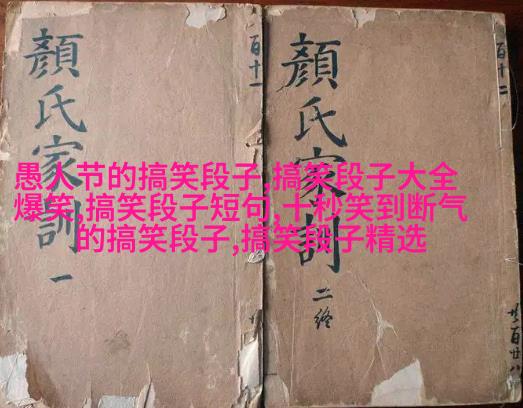 顔氏家訓一
百十一
顔氏家訓二終
百十二
愚人节的搞笑段子,搞笑段子大全
爆笑,搞笑段子短句,十秒笑到断气
的搞笑段子,搞笑段子精选